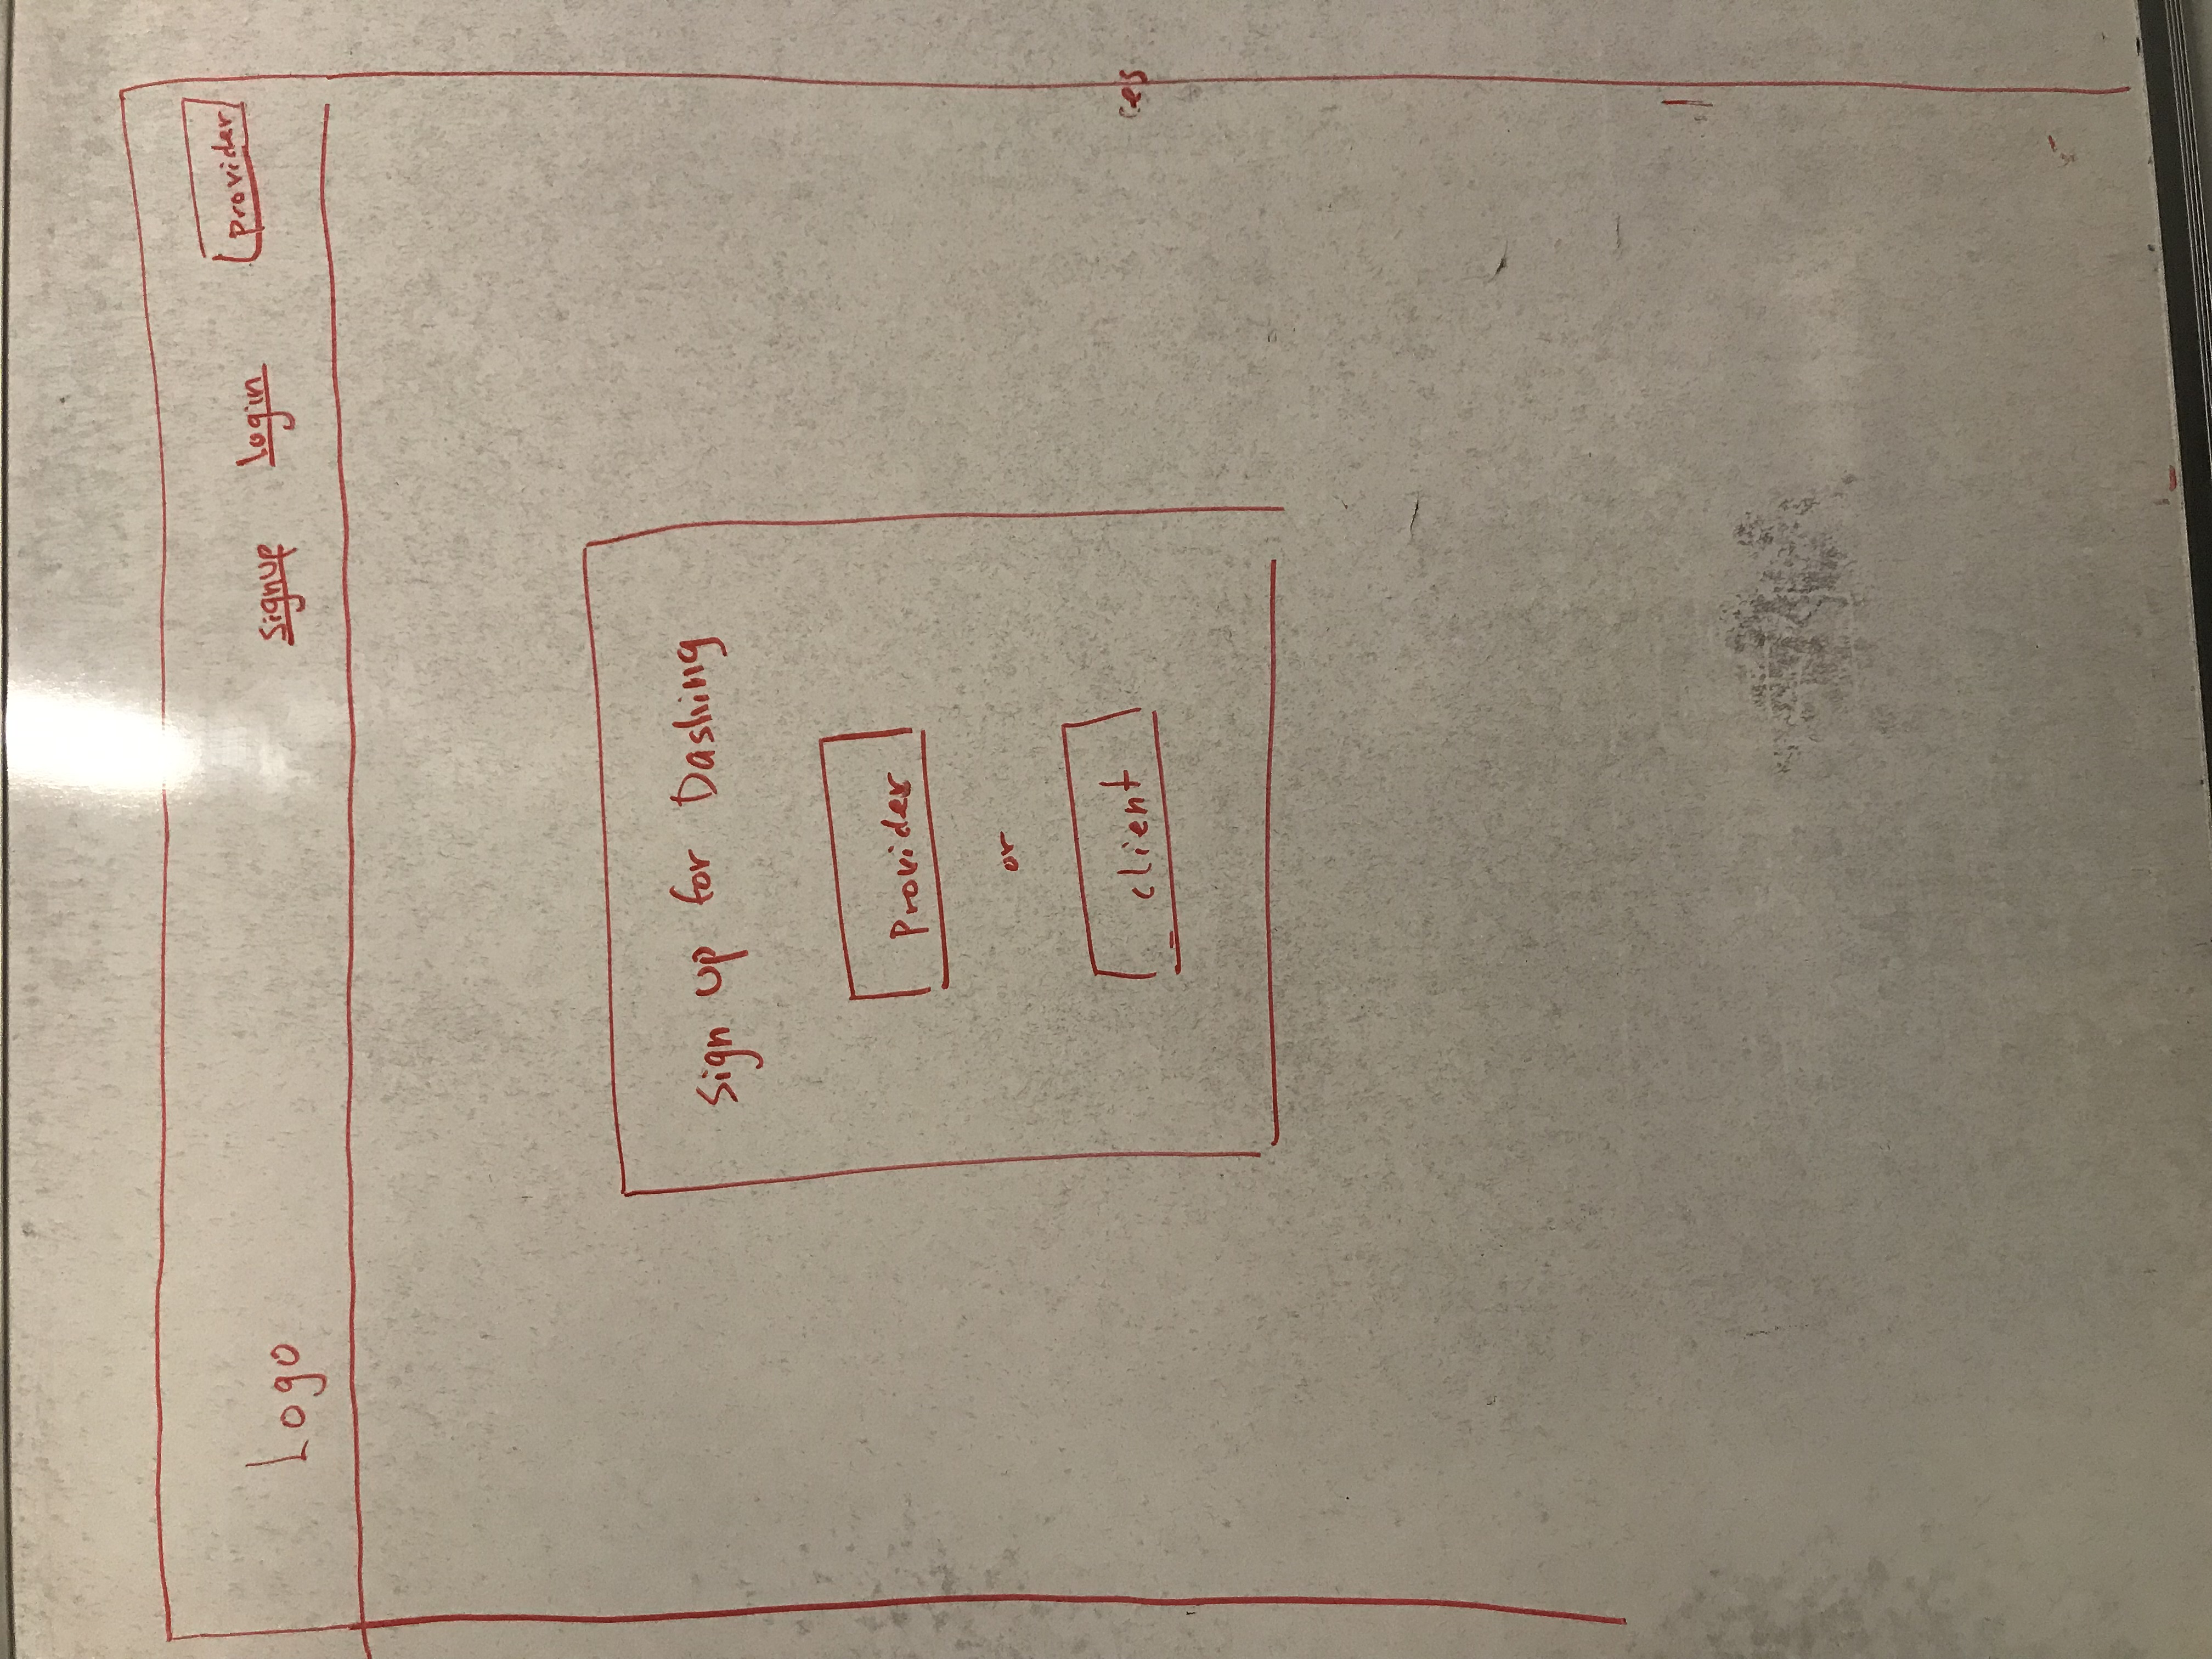 Logo
signup login provider
Sign up for Dashing
Provider
or
client
ces